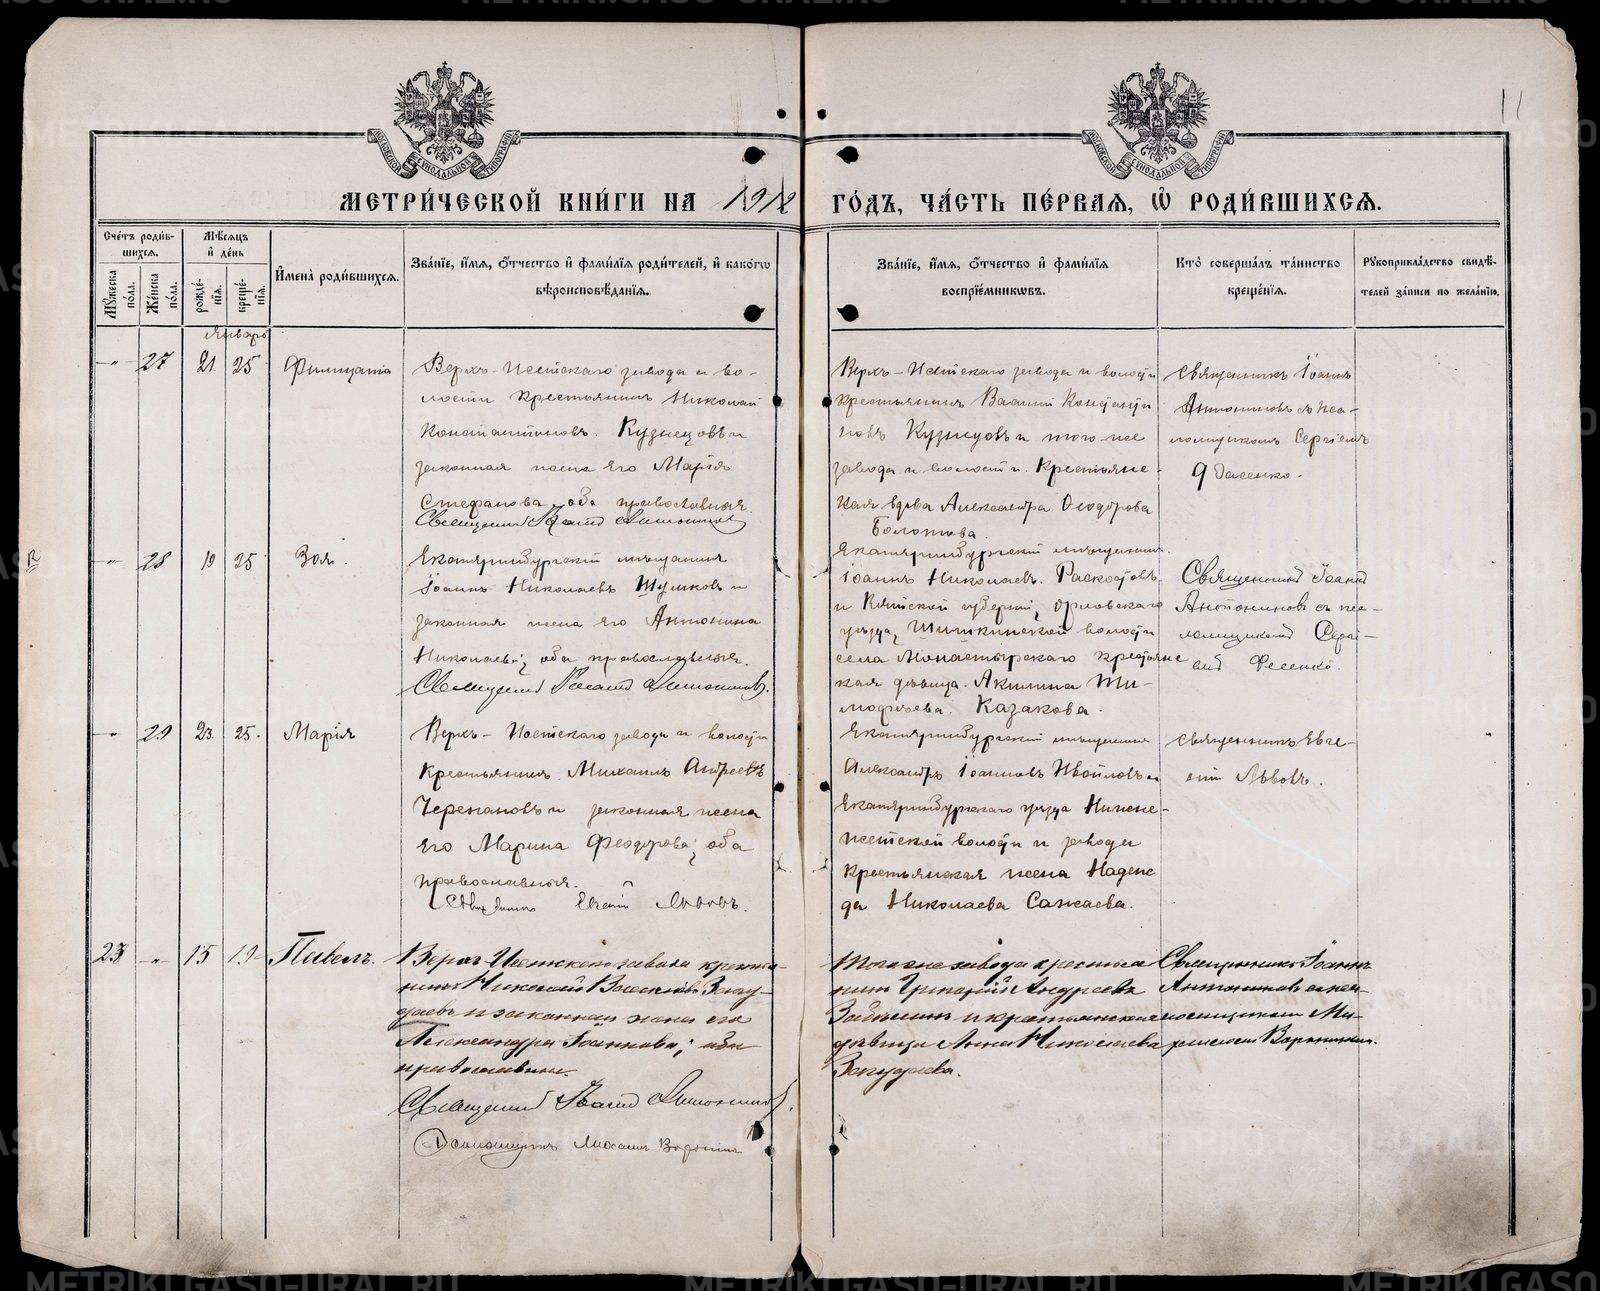 11
МЕТРИ́ЧЕСКОЙ КНИ́ГИ НА 1912 ГО́ДЪ, ЧА́СТЬ ПЕ́РВАЯ, Ѡ҆ РОДИ́ВШИХСЯ.
Сче́тъ роди́в-
шихся.
Мꙋ́жеска по́ла.
Же́нска по́ла.
Мѣ́сяцъ
и҆ де́нь
рожде́-
нїя.
креще́-
нїя.
И҆мена̀ роди́вшихся.
Зва́нїе, и҆́мя, ѻ҆́тчество и҆ фами́лїя роди́телей, и҆ како́гѡ
вѣроисповѣ́данїя.
Зва́нїе, и҆́мя, ѻ҆́тчество и҆ фами́лїя
воспрїе́мникѡвъ.
Кто̀ соверша́лъ та́инство
креще́нїя.
Рꙋкоприкла́дство свидѣ́-
телей за́писи по жела́нїю.
Январь
27 21 25 Фелицата
Верхъ-Исетскаго завода и во-
лости крестьянинъ Николай
Константиновъ. Кузнецовъ и
законная жена его Марія
Стефанова, оба православныя.
Священникъ Іоаннъ Антониновъ
Верхъ-Исетскаго завода и волости
крестьянинъ Василій Константи
новъ Кузнецовъ и того-же
завода и волости. Крестьянс-
кая вдова Александра Ѳеодорова
Болотова.
Священникъ Іоаннъ
Антониновъ съ пса-
ломщикомъ Сергіемъ
Фесенко.
28 19 25 Зоя.
Екатеринбургскій мѣщанинъ
Іоаннъ Николаевъ Шумковъ и
законная жена его Антонина
Николаева; оба православныя.
Священникъ Іоаннъ Антониновъ.
Екатеринбургскій мѣщанинъ.
Іоаннъ Николаевъ.
и Вятской губерніи, Орловскаго
уѣзда, волости
села Монастырскаго крестьянс
кая дѣвица. Акилина Ти-
мофеева. Казакова.
Священникъ Іоаннъ
Антониновъ съ пса-
ломщикомъ Сергі-
емъ Фесенко.
29 23 25. Марія
Верхъ-Исетскаго завода и волости
Крестьянинъ Михаилъ Андреевъ
Черепановъ и законная жена
его Марина Ѳеодорова; оба
православныя.
Священникъ Евгеній Львовъ.
Екатеринбургскій мѣщанинъ
Александръ Іоанновъ Ивойловъ и
Екатеринбургскаго уѣзда Нижне-
исетской волости и завода
крестьянская жена Надеж
да Николаева Сажаева.
священникъ Евге-
ній Львовъ.
23 15 19 Павелъ.
Верхъ-Исетскаго завода крестья-
нинъ Николай Васильевъ Загу-
даевъ и законная жена его
Александра Іоаннова; оба
православные.
Священникъ Іоаннъ Антониновъ.
Псаломщикъ Михаилъ
Того же завода крестья
нинъ Григорій Андреевъ
и крестьянская
дѣвица Анна Николаева
Загудаева.
Священникъ Іоаннъ
Антониновъ съ пса-
ломщикомъ Ми-
хаиломъ